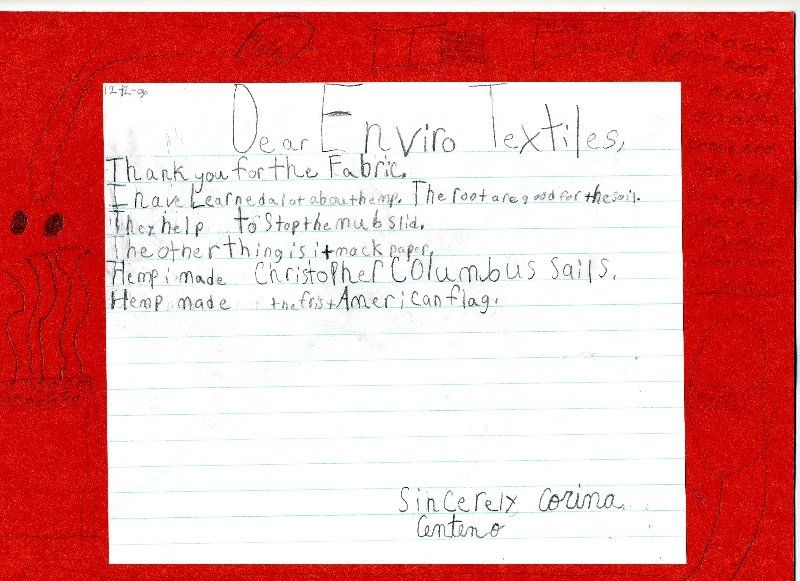 12-12-06
Dear Enviro Textiles,
Thank you for the Fabric.
I have Learned a lot about hemp. The root are good for the soil.
They help to Stop the mub slid.
The other thing is it mack paper.
Hemp i made Christopher COlumbus Sails.
Hemp made the frist American flag.
Sincerely, Corina
Centeno